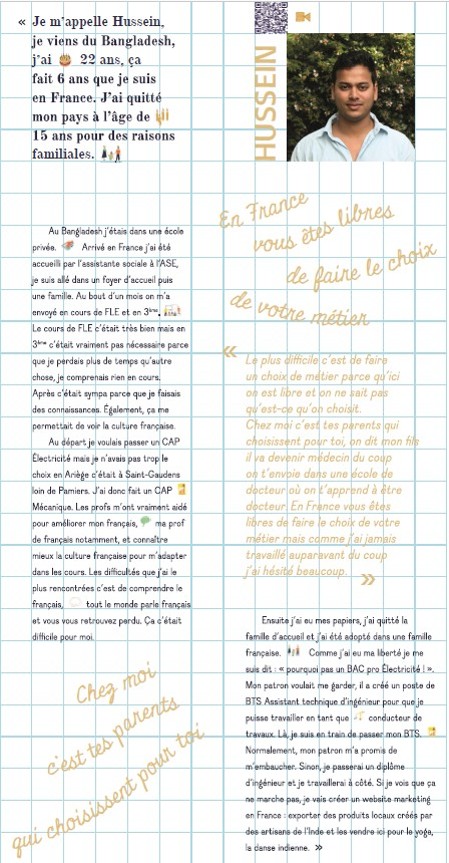 « Je m'appelle Hussein,
je viens du Bangladesh,
j'ai 22 ans, ça
fait 6 ans que je suis
en France. J'ai quitté
mon pays à l'âge de
15 ans pour des raisons
familiales.
HUSSEIN
Au Bangladesh j'étais dans une école
privée. Arrivé en France j'ai été
accueilli par l'assistante sociale à l'ASE,
je suis allé dans un foyer d'accueil puis
une famille. Au bout d'un mois on m'a
envoyé en cours de FLE et en 3ème.
Le cours de FLE c'était très bien mais en
3ème c'était vraiment pas nécessaire parce
que je perdais plus de temps qu'autre
chose, je comprenais rien en cours.
Après c'était sympa parce que je faisais
des connaissances. Également, ça me
permettait de voir la culture française.
Au départ je voulais passer un CAP
Électricité mais je n'avais pas trop le
choix en Ariège c'était à Saint-Gaudens
loin de Pamiers. J'ai donc fait un CAP
Mécanique. Les profs m'ont vraiment aidé
pour améliorer mon français, ma prof
de français notamment, et connaître
mieux la culture française pour m'adapter
dans les cours. Les difficultés que j'ai le
plus rencontrées c'est de comprendre le
français, tout le monde parle français
et vous vous retrouvez perdu. Ça c'était
difficile pour moi.
Chez moi
c'est tes parents
qui choisissent pour toi
En France
vous êtes libres
de faire le choix
de votre métier
« Le plus difficile c'est de faire
un choix de métier parce qu'ici
on est libre et on ne sait pas
qu'est-ce qu'on choisit.
Chez moi c'est tes parents qui
choisissent pour toi, on dit mon fils
il va devenir médecin du coup
on t'envoie dans une école de
docteur où on t'apprend à être
docteur. En France vous êtes
libres de faire le choix de votre
métier mais comme j'ai jamais
travaillé auparavant du coup
j'ai hésité beaucoup. »
Ensuite j'ai eu mes papiers, j'ai quitté la
famille d'accueil et j'ai été adopté dans une famille
française. Comme j'ai eu ma liberté je me
suis dit : « pourquoi pas un BAC pro Électricité ! ».
Mon patron voulait me garder, il a créé un poste de
BTS Assistant technique d'ingénieur pour que je
puisse travailler en tant que conducteur de
travaux. Là, je suis en train de passer mon BTS.
Normalement, mon patron m'a promis de
m'embaucher. Sinon, je passerai un diplôme
d'ingénieur et je travaillerai à côté. Si je vois que ça
ne marche pas, je vais créer un website marketing
en France : exporter des produits locaux créés par
des artisans de l'Inde et les vendre ici pour le yoga,
la danse indienne. »